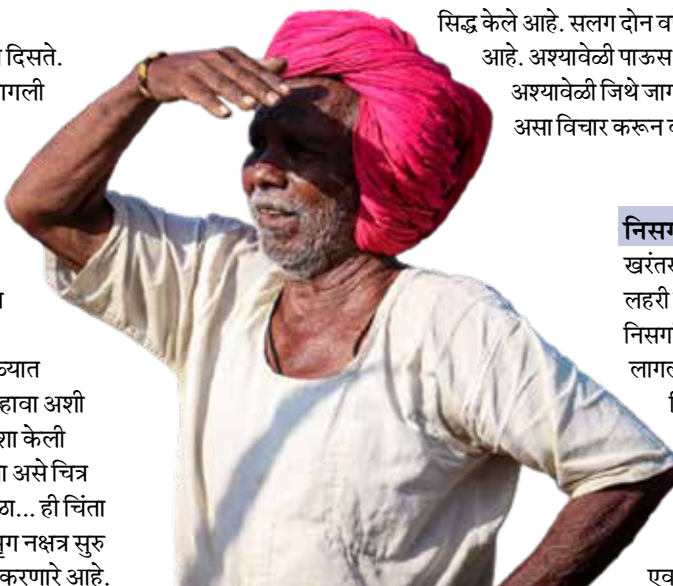 दिसते.
गली
यात
व्हावा अशी
शा केली
असे चित्र
ळा... ही चिंता
मृग नक्षत्र सुरु
करणारे आहे.
सिद्ध केले आहे. सलग दोन व
आहे. अश्यावेळी पाऊस
अश्यावेळी जिथे जाग
असा विचार करून
निसग
खरंतर
लहरी
निसर्ग
लागल
एव